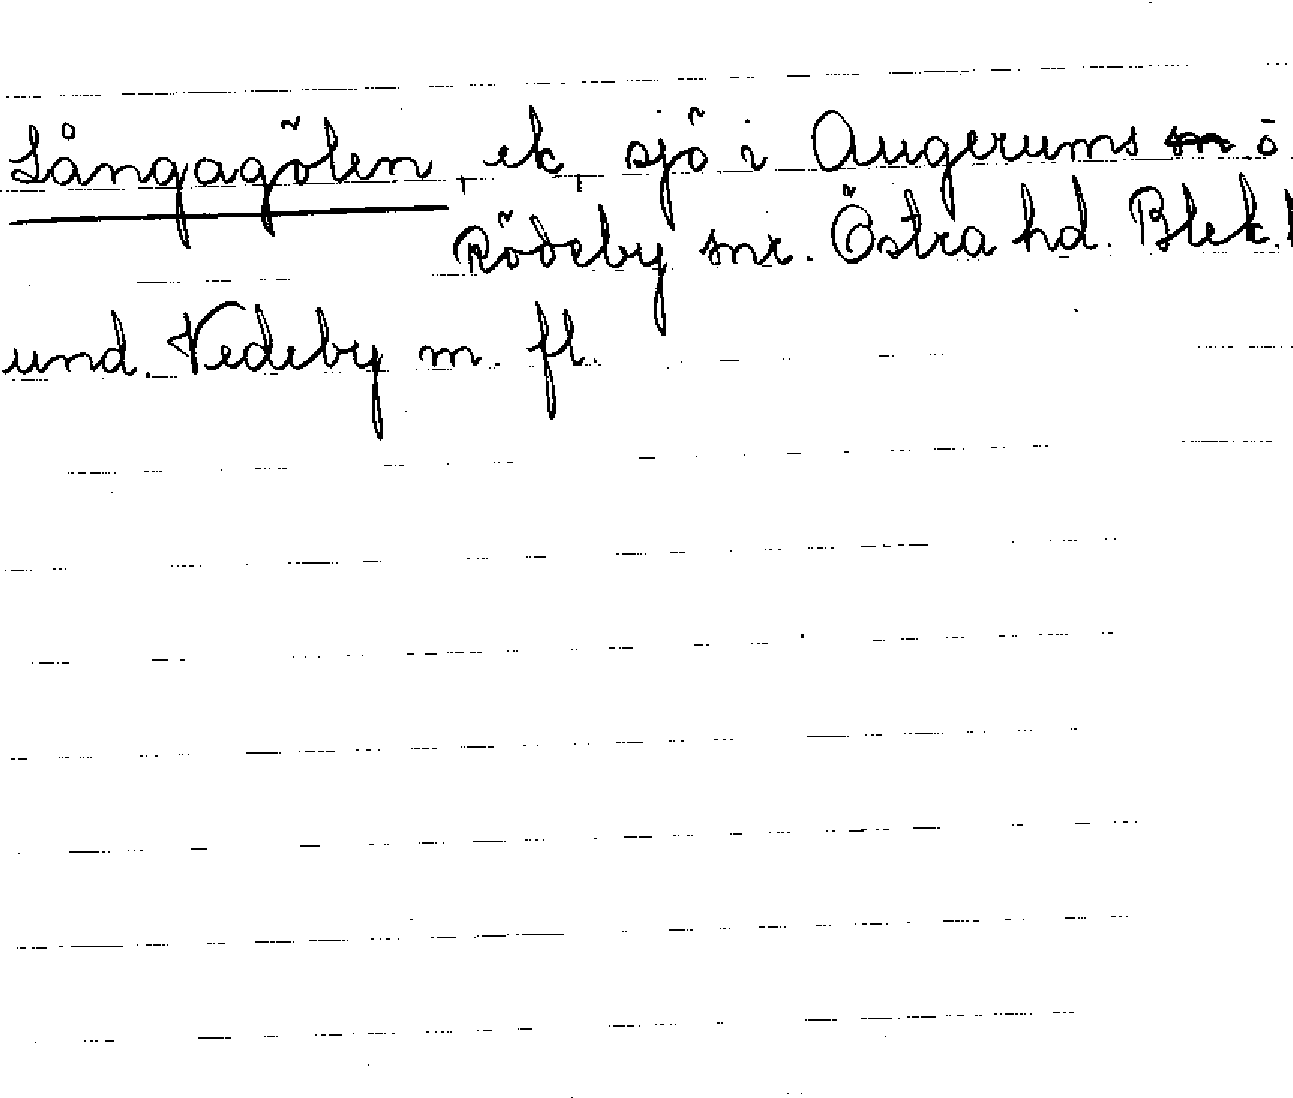 Långagölen, ek, sjö i Augerums o
Rödeby snr. Östra hd. Blek. l
und. Vedeby m. fl.